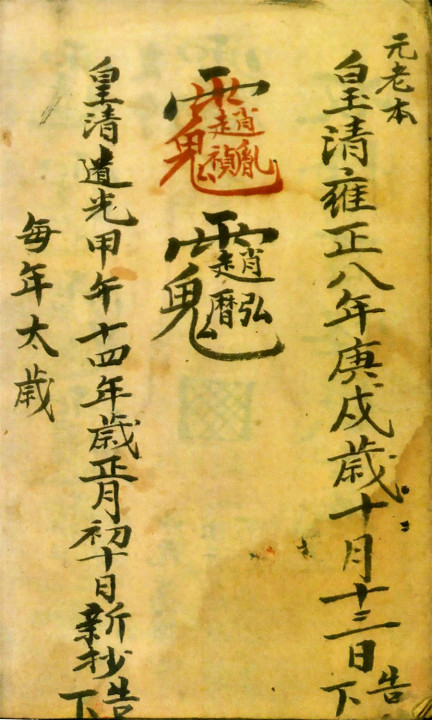 元老本
皇清雍正八年庚戌歲十月十三日告下
趙胤禎
趙弘曆
皇清道光甲午十四年歲正月初十日新抄告下
每年太歲